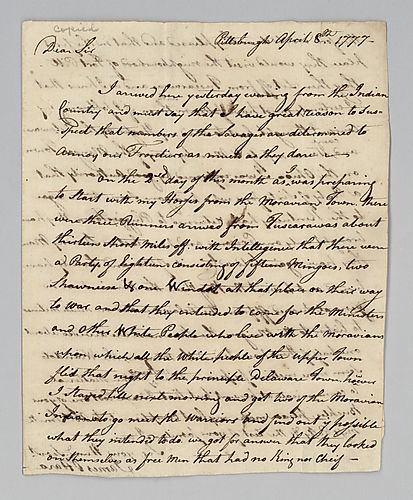 Copied
Pittsburgh April 8th. 1777—
Dear Sir
I arrived here yesterday evening from the Indian
Country and must say that I have great reason to Sus-
pect that numbers of the Savages are determined to
annoy our Frontiers as much as they dare —
On the 2d. day of this month as I was preparing
to Start with my Horses from the Moravian Town there
were three Runners arrived from Tuscarawas about
thirteen Short Miles off with Intelligence that there were
a Party of Eighteen consisting of fifteen Mingoes, two
Shawnese & one Wiandot at that place on their way
to War and that they intended to come for the Ministers
and other White People who lived with the Moravians
upon which all the White people of the Upper Town
fled that night to the principle Delaware Town,
I stayed till next morning and got two of the Moravian
Indians to go meet the Warriors and find out if possible
what they intended to do we got for answer that they looked
on themselves as free Men that had no King nor Cheif —